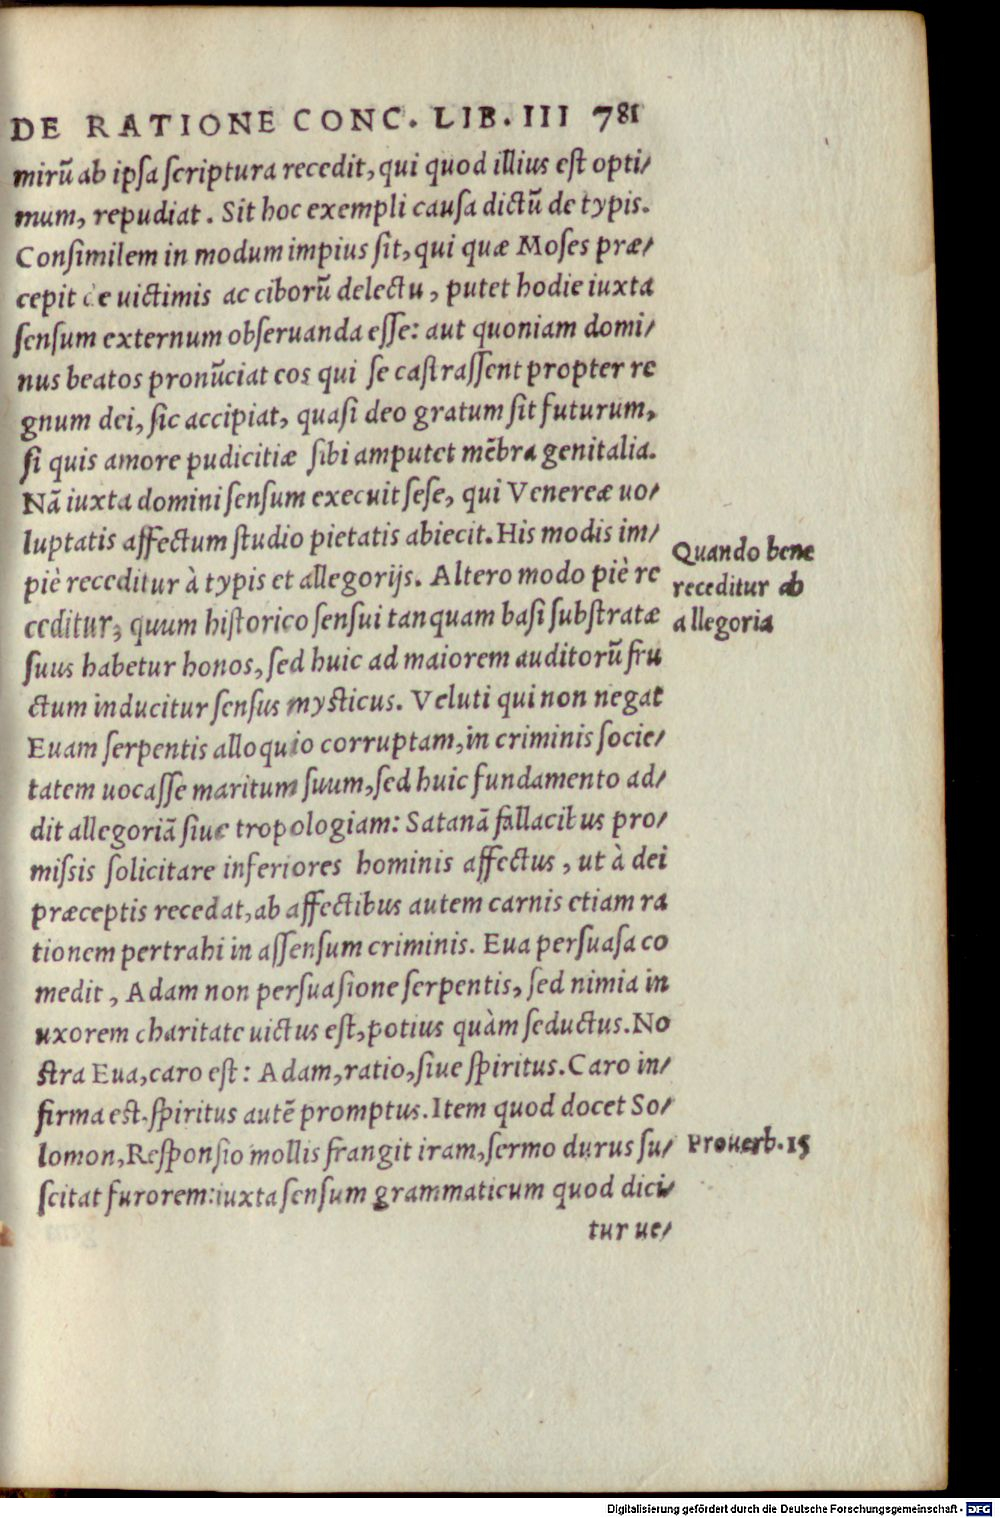 DE RATIONE CONC. LIB. III 781
mirũ ab ipſa ſcriptura recedit, qui quod illius eſt opti/
mum, repudiat. Sit hoc exempli cauſa dictũ de typis.
Conſimilem in modum impius ſit, qui quæ Moſes præ/
cepit de uictimis ac ciborũ delectu, putet hodie iuxta
ſenſum externum obſeruanda eſſe: aut quoniam domi/
nus beatos pronũciat eos qui ſe caſtraſſent propter re
gnum dei, ſic accipiat, quaſi deo gratum ſit futurum,
ſi quis amore pudicitiæ ſibi amputet mẽbra genitalia.
Nã iuxta domini ſenſum execuit ſeſe, qui Venereæ uo/
luptatis affectum ſtudio pietatis abiecit. His modis im/
piè receditur à typis et allegorijs. Altero modo piè re
ceditur, quum hiſtorico ſenſui tanquam baſi ſubſtratæ
ſuus habetur honos, ſed huic ad maiorem auditorũ fru
ctum inducitur ſenſus myſticus. Veluti qui non negat
Euam ſerpentis alloquio corruptam, in criminis ſocie/
tatem uocaſſe maritum ſuum, ſed huic fundamento ad/
dit allegoriã ſiue tropologiam: Satanã fallacibus pro/
miſsis ſolicitare inferiores hominis affectus, ut à dei
præceptis recedat, ab affectibus autem carnis etiam ra
tionem pertrahi in aſſenſum criminis. Eua perſuaſa co
medit, Adam non perſuaſione ſerpentis, ſed nimia in
uxorem charitate uictus eſt, potius quàm ſeductus. No
ſtra Eua, caro eſt: Adam, ratio, ſiue ſpiritus. Caro in/
firma eſt, ſpiritus autẽ promptus. Item quod docet So/
lomon, Reſponſio mollis frangit iram, ſermo durus ſu/
ſcitat furorem: iuxta ſenſum grammaticum quod dici/
tur ue/
Quando bene
receditur ab
allegoria
Prouerb. 15
Digitalisierung gefördert durch die Deutsche Forschungsgemeinschaft - DFG